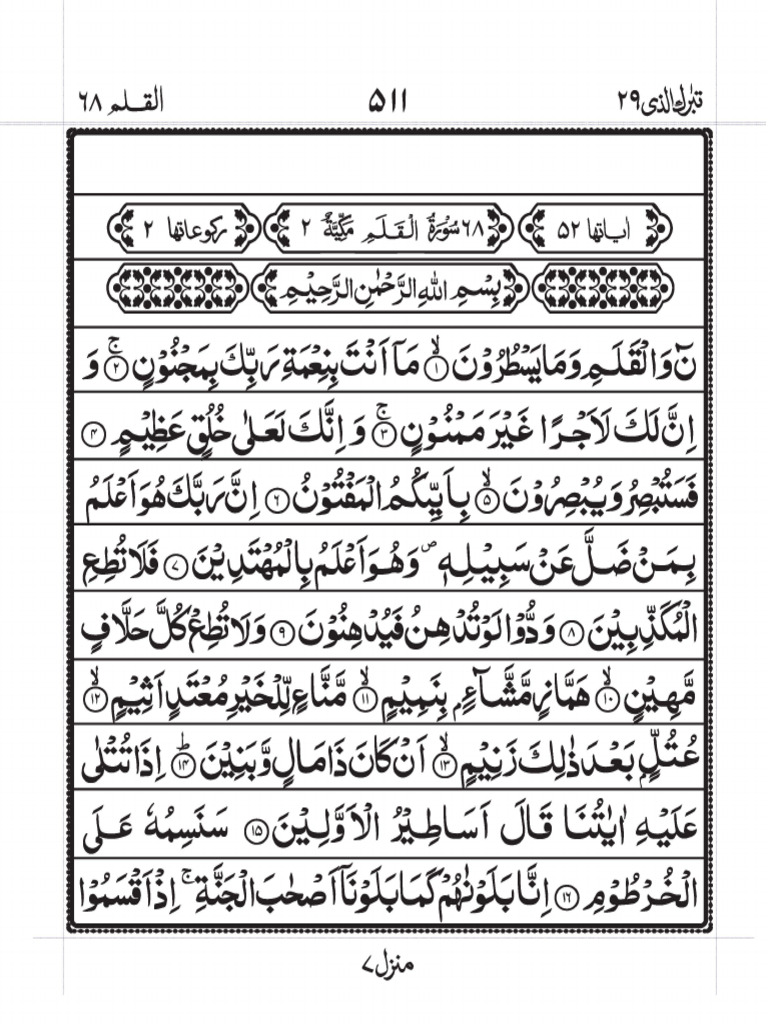 تبٰرك الذی ۲۹
۵۱۱
القلم ۶۸
اٰیاتها ۵۲
۶۸ سُوْرَةُ الْقَلَمِ مَكِّيَّةٌ ۲
رکوعاتها ۲
بِسْمِ اللّٰهِ الرَّحْمٰنِ الرَّحِيْمِ
نٓ وَالْقَلَمِ وَمَا يَسْطُرُوْنَ ۙ﴿۱﴾ مَآ اَنْتَ بِنِعْمَةِ رَبِّكَ بِمَجْنُوْنٍ ۚ﴿۲﴾ وَ
اِنَّ لَكَ لَاَجْرًا غَيْرَ مَمْنُوْنٍ ۚ﴿۳﴾ وَاِنَّكَ لَعَلٰى خُلُقٍ عَظِيْمٍ ﴿۴﴾
فَسَتُبْصِرُ وَيُبْصِرُوْنَ ۙ﴿۵﴾ بِاَيِّىكُمُ الْمَفْتُوْنُ ﴿۶﴾ اِنَّ رَبَّكَ هُوَ اَعْلَمُ
بِمَنْ ضَلَّ عَنْ سَبِيْلِهٖ ۪ وَهُوَ اَعْلَمُ بِالْمُهْتَدِيْنَ ﴿۷﴾ فَلَا تُطِعِ
الْمُكَذِّبِيْنَ ﴿۸﴾ وَدُّوْا لَوْ تُدْهِنُ فَيُدْهِنُوْنَ ﴿۹﴾ وَلَا تُطِعْ كُلَّ حَلَّافٍ
مَّهِيْنٍ ۙ﴿۱۰﴾ هَمَّازٍ مَّشَّآءٍۭ بِنَمِيْمٍ ۙ﴿۱۱﴾ مَّنَّاعٍ لِّلْخَيْرِ مُعْتَدٍ اَثِيْمٍ ۙ﴿۱۲﴾
عُتُلٍّۭ بَعْدَ ذٰلِكَ زَنِيْمٍ ۙ﴿۱۳﴾ اَنْ كَانَ ذَا مَالٍ وَّبَنِيْنَ ؕ﴿۱۴﴾ اِذَا تُتْلٰى
عَلَيْهِ اٰيٰتُنَا قَالَ اَسَاطِيْرُ الْاَوَّلِيْنَ ﴿۱۵﴾ سَنَسِمُهٗ عَلَى
الْخُرْطُوْمِ ﴿۱۶﴾ اِنَّا بَلَوْنٰهُمْ كَمَا بَلَوْنَاۤ اَصْحٰبَ الْجَنَّةِ ۚ اِذْ اَقْسَمُوْا
منزل ۷